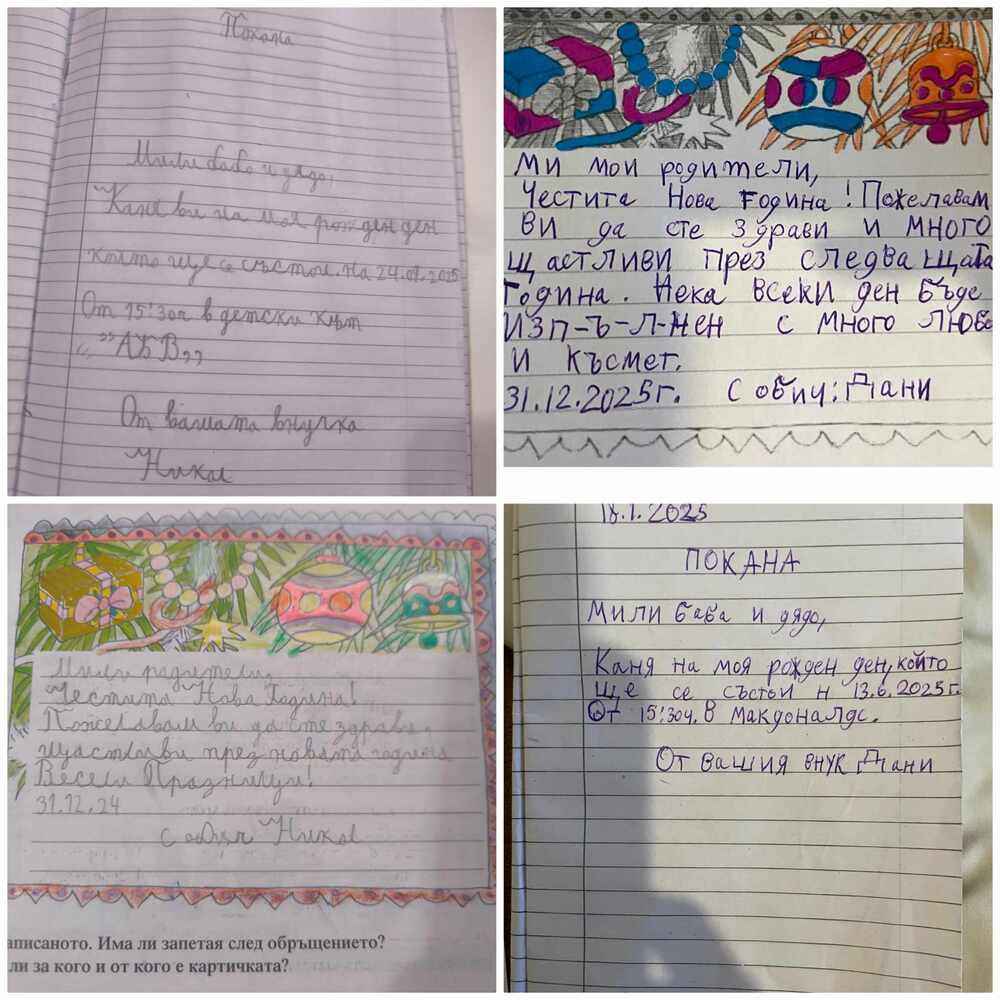 Покана
Мили баба и дядо,
Каня ви на моя рожден ден
който ще се състои на 24.01.2025
От 15':30ч в детски кът
„ "АБВ„
От вашата внучка
Никол
Ми мои родители,
Честита Нова Година! Пожелавам
ви да сте здрави и много
щастливи през следващата
Година. Нека всеки ден бъде
ИЗП-Ъ-Л-НЕН с много любо
и късмет.
31.12.2025г. С обич: Дани
Мили родители,
Честита Нова Година!
Пожелавам ви да сте здрави,
щастливи през новата година
Весели Празници!
31.12.24
С обич Никол
аписаното. Има ли запетая след обръщението?
ли за кого и от кого е картичката?
18.1.2025
ПОКАНА
Мили баба и дядо,
Каня на моя рожден ден, който
ще се състьи н 13.6.2025г.
От 15':30ч. в Макдоналдс.
От вашия внук Дани